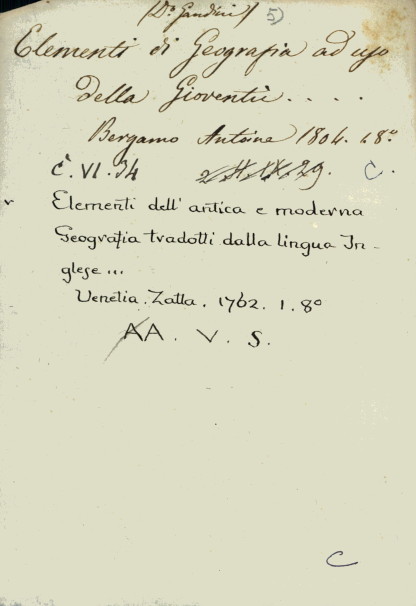 (D.º Gandini) 5)
Elementi di Geografia ad uso
della Gioventù . . . .
Bergamo Antoine 1804. 8º
Č. VI. 34 C.
Elementi dell' antica e moderna
Geografia tradotti dalla lingua In-
glese...
Venetia. Zatta. 1762. 1. 8º
AA. V. S.
C